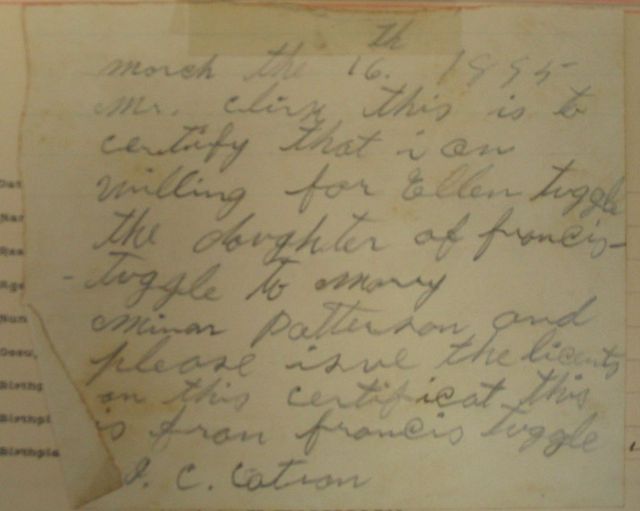 march the 16th. 1895
mr. clirk this is to
certify that i am
willing for Ellen tuggle
the daughter of francis
tuggle to marry
minor patterson and
please isue the licents
on this certificat this
is from francis tuggle
J. C. Catron
Nam
Rac
Age
Num
Occu,
Births
Birthpl
Birthpla